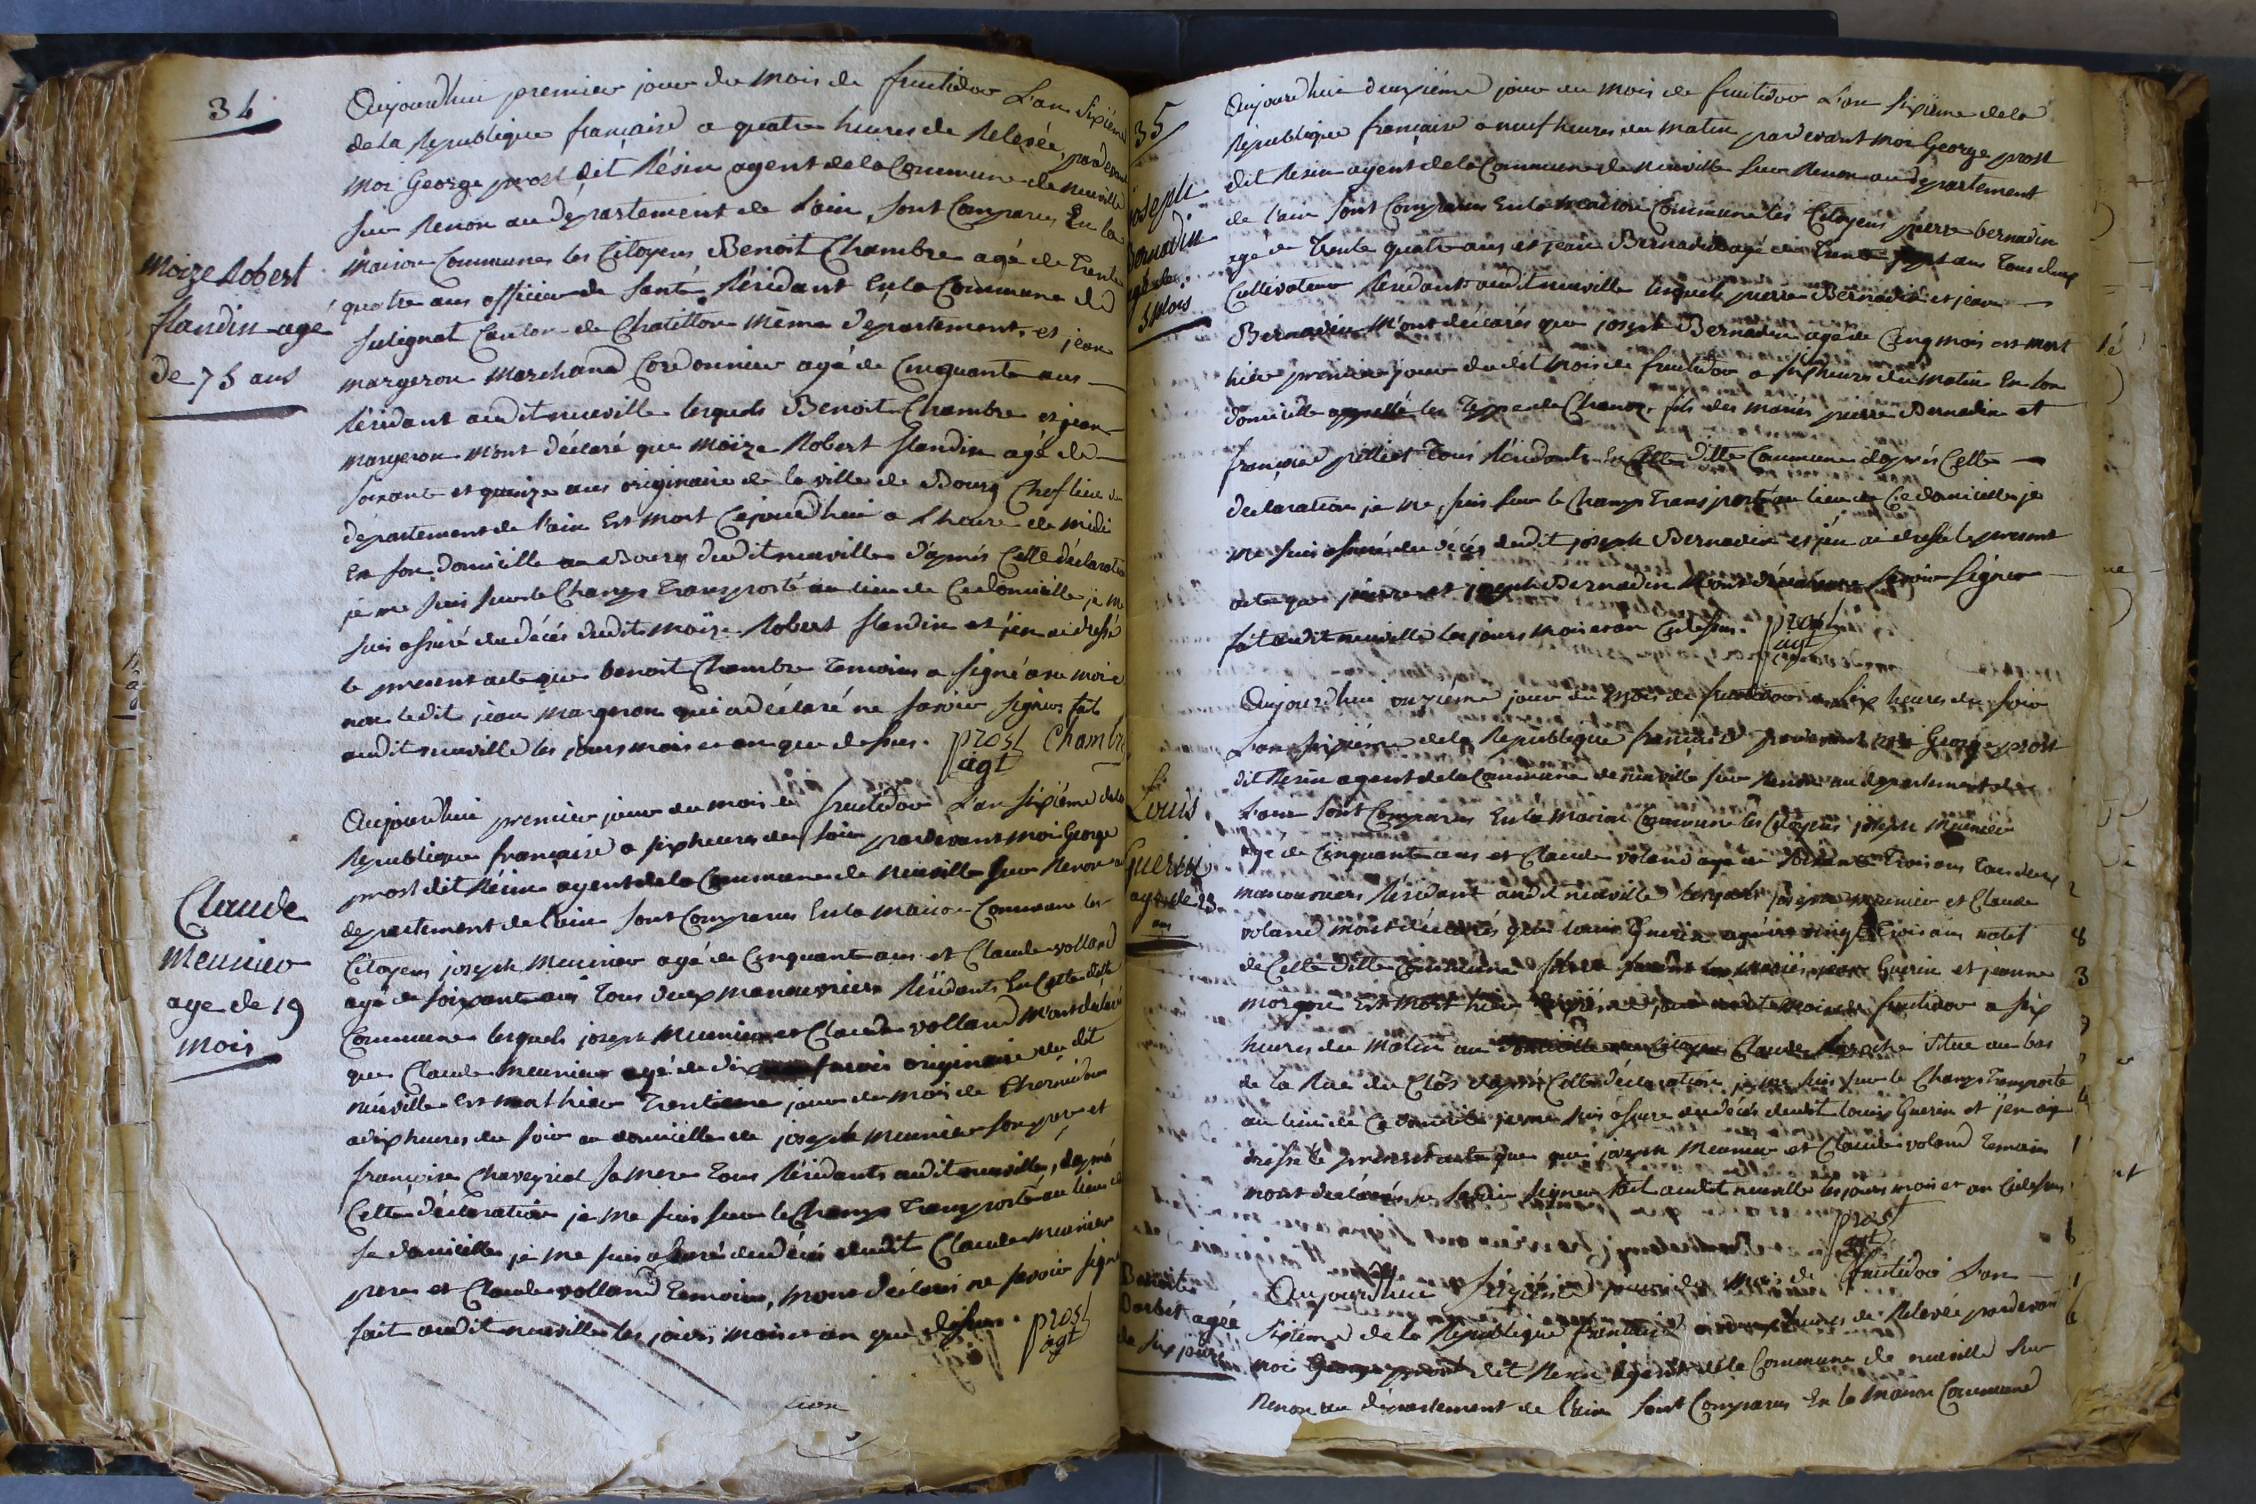 34
Moize Robert
flandin agé
de 75 ans
Aujourdhui premier jour du mois de fructidor L'an Sixiéme
de la Republique française a quatre heures de Relevée pardevant
moi George prost dit Résin agent de la Commune de neuville
sur Renon au département de l'ain, sont Comparus En la
maison Commune les Citoyens Benoit Chambre agé de Trente
quatre ans officier de Santé Résidant En la Commune de
sulignat Canton de Chatillon même département, et jean
margeron marchand Cordonnier agé de Cinquante ans
Résidant audit neuville lesquels Benoit Chambre et jean
margeron m'ont déclaré que moïze Robert flandin agé de
soixante et quinze ans originaire de la ville de Bourg Chef lieu du
département de l'ain Est mort Cejourdhui a l'heure de midi
En son domicille au Bourg dudit neuville d'aprés Cette déclaration
je me suis sur le Champs Transporté au lieu de Ce domicille je me
suis assuré du décés dudit moïze Robert flandin et j'en ai dressé
le present acte que benoit Chambre Temoins a signé avec moi e
non ledit jean margeron qui a déclaré ne savoir signer fait
audit neuville les jours mois et an que dessus. prost Chambre
agt
Claude
Meunier
age de 19
mois
Aujourdhui premier jour du mois de fructidor L'an sixiéme de la
Republique française a six heures du soir pardevant moi George
prost dit Résin agent de la Commune de Neuville sur Renon au
departement de l'ain sont Comparus En la maison Commune les
Citoyens joseph Meunier agé de Cinquante ans et Claude volland
agé de soixante ans Tous deux manouvriers Résidants En Cette ditte
Commune lesquels joseph Meunier et Claude volland M'ont déclaré
que Claude Meunier agé de dix mois originaire du dit
neuville est mort hier Trentieme jour du mois de Thermidor
a dix heures du soir au domicille de joseph Meunier son pere et
françoise Chaveyriat sa mere Tous Résidants audit neuville, d'aprés
Cette déclaration je me suis sur le Champs Transporté au lieu de
Ce domicille je me suis assuré du décés dudit Claude Meunier
pere et Claude volland Temoins, m'ont déclaré ne savoir signer
fait audit neuville les jours mois et an que dessus. prost
agt
35
joseph
Bernadin
agé de
5 Mois
Aujourdhui deuxiéme jour du mois de fructidor L'an sixiéme de la
République française a neuf heures du matin pardevant moi George prost
dit Résin agent de la Commune de neuville sur Renon au departement
de l'ain sont Comparus En la maison Commune les Citoyens pierre bernadin
agé de Trente quatre ans et jean Bernadin agé de Trente sept ans Tous deux
Cultivateur Résidant audit neuville lesquels pierre Bernadin et jean
Bernadin M'ont déclarés que joseph Bernadin agé de Cinq mois est mort
hier premier jour du dit mois de fructidor a six heures du matin En son
domicille appellé les de Chanoz fils des mariés pierre Bernadin et
françoise pelliet Tous Résidants En Cette ditte Commune d'aprés Cette
declaration je me suis sur le Champs Transporté au lieu de Ce domicille je
me suis assuré du décés dudit joseph Bernadin et j'en ai dressé le present
acte que pierre et joseph Bernadin M'ont déclaré ne savoir signer
fait audit neuville les jours mois et an Cidessus. prost
agt
Louis
Guerin
agé de 23
ans
Aujourd'hui onzieme jour du mois de fructidor a Six heures du soir
L'an sixiéme de la République française pardevant moi George prost
dit Résin agent de la Commune de neuville sur Renon au departement de
L'ain sont Comparus En la Maison Commune les Citoyens joseph Meunier
agé de Cinquante ans et Claude voland agé de soixante Trois ans Tous deux
manouvriers Résidant audit neuville lesquels joseph meunier et Claude
voland m'ont déclarés que louis Guerin agé de vingt Trois ans natif
de Cette ditte Commune fils des mariés jean Guerin et jeanne
Est Mort hier jour dudit mois de fructidor a six
heures du Matin au domicille du Citoyen Claude situe au bas
de la Rue du Clos d'aprés Cette déclaration je me suis sur le Champs Transporte
au lieu de Ce domicille je me suis assure du décés dudit louis Guerin et j'en ai
dressé le present acte que joseph Meunier et Claude voland Temoins
m'ont déclarés ne savoir signer fait audit neuville les jours mois et an Cidessus.
prost
agt
Benoite
agée
de six jours
Aujourdhui jour du mois de fructidor L'an
sixiéme de la République française a heures de Relevée pardevant
moi George prost dit Resin agent de la Commune de neuville sur
Renon au département de l'ain sont Comparus En la Maison Commune